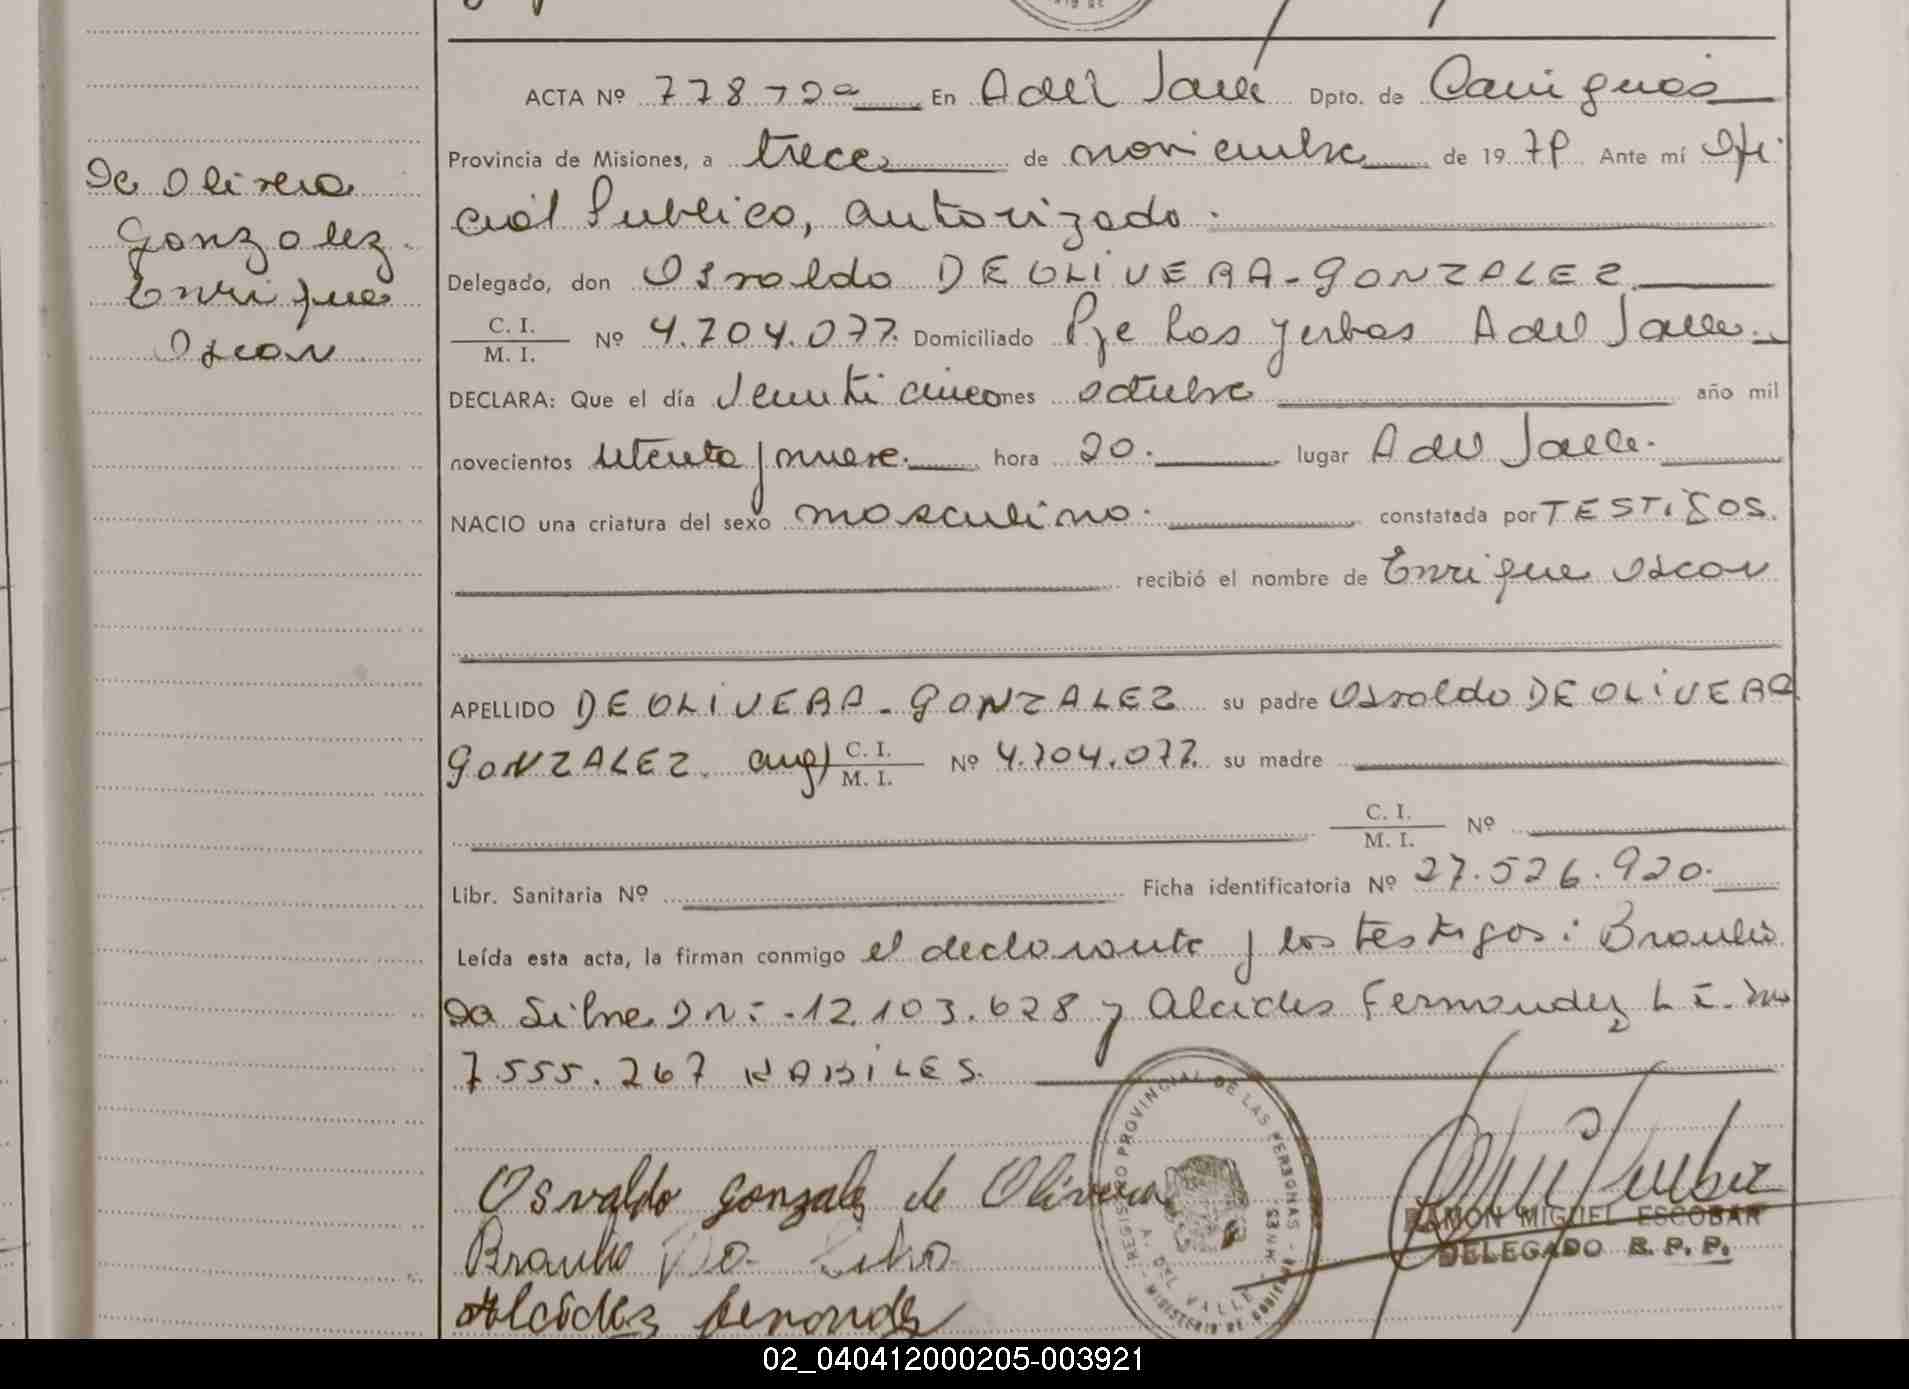 De Olivera
Gonzalez
Enrique
Oscar
ACTA Nº 778-Dª En A del Valle Dpto. de Cainguas
Provincia de Misiones, a trece de noviembre de 1979 Ante mí Ofi-
cial Publico, autorizado.
Delegado, don Osvaldo DE OLIVERA-GONZALEZ
C. I. / M. I. Nº 4.704.077. Domiciliado Pje Las Yerbas A del Valle.
DECLARA: Que el día Veinticinco mes octubre año mil
novecientos setenta y nueve. hora 20. lugar A del Valle.
NACIO una criatura del sexo masculino. constatada por TESTIGOS.
recibió el nombre de Enrique Oscar
APELLIDO DE OLIVERA-GONZALEZ su padre Osvaldo DE OLIVERA
GONZALEZ. arg) C. I. / M. I. Nº 4.704.077. su madre
C. I. / M. I. Nº
Libr. Sanitaria Nº Ficha identificatoria Nº 27.526.920.
Leída esta acta, la firman conmigo el declarante y los testigos: Braulio
Da Silva DNI-12.103.628 y Alcides Fernandez L E. Nº
7.555.267 HABILES.
Osvaldo Gonzalez de Olivera
Braulio Da Silva
Alcidez Fernandez
REGISTRO PROVINCIAL DE LAS PERSONAS - MINISTERIO DE GOBIERNO
A. DEL VALLE - MNES
RAMON MIGUEL ESCOBAR
DELEGADO R. P. P.
02_040412000205-003921